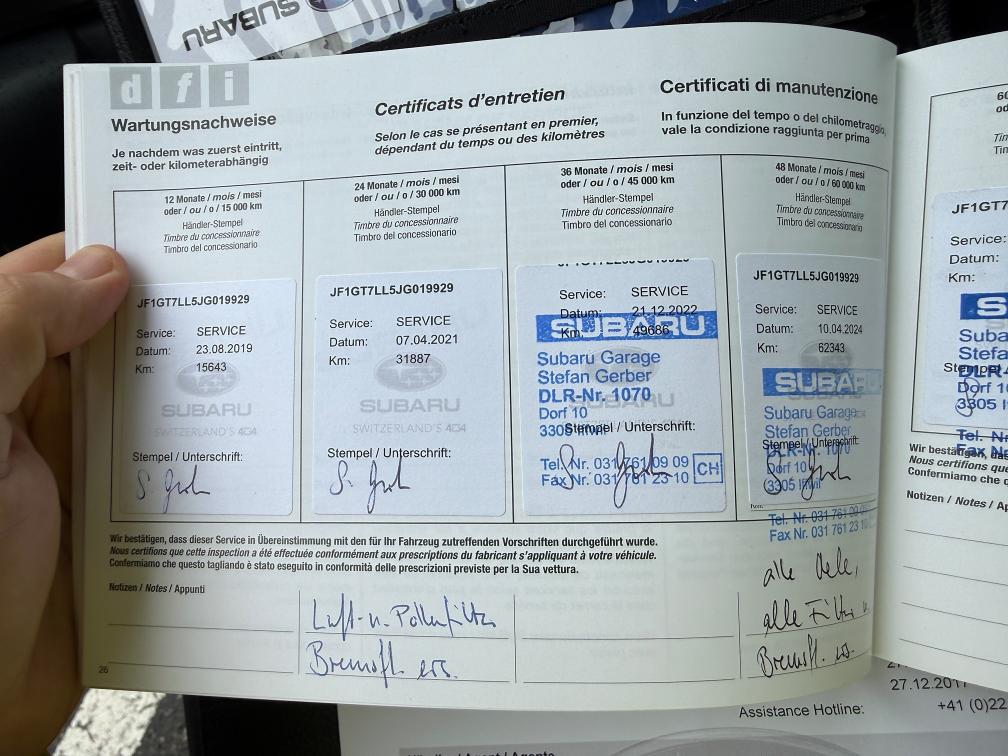 SUBARU
d f i
Wartungsnachweise
Je nachdem was zuerst eintritt,
zeit- oder kilometerabhängig
Certificats d'entretien
Selon le cas se présentant en premier,
dépendant du temps ou des kilomètres
Certificati di manutenzione
In funzione del tempo o del chilometraggio,
vale la condizione raggiunta per prima
12 Monate / mois / mesi
oder / ou / o / 15 000 km
Händler-Stempel
Timbre du concessionnaire
Timbro del concessionario
JF1GT7LL5JG019929
Service: SERVICE
Datum: 23.08.2019
Km: 15643
SUBARU
SWITZERLAND'S 4x4
Stempel / Unterschrift:
24 Monate / mois / mesi
oder / ou / o / 30 000 km
Händler-Stempel
Timbre du concessionnaire
Timbro del concessionario
JF1GT7LL5JG019929
Service: SERVICE
Datum: 07.04.2021
Km: 31887
SUBARU
SWITZERLAND'S 4x4
Stempel / Unterschrift:
36 Monate / mois / mesi
oder / ou / o / 45 000 km
Händler-Stempel
Timbre du concessionnaire
Timbro del concessionario
Service: SERVICE
Datum: 21.12.2022
Km: 49686
SUBARU
Subaru Garage
Stefan Gerber
DLR-Nr. 1070
Dorf 10
3305 Iffwil
Stempel / Unterschrift:
Tel. Nr. 031 761 09 09
Fax Nr. 031 761 23 10
CH
48 Monate / mois / mesi
oder / ou / o / 60 000 km
Händler-Stempel
Timbre du concessionnaire
Timbro del concessionario
JF1GT7LL5JG019929
Service: SERVICE
Datum: 10.04.2024
Km: 62343
SUBARU
Subaru Garage
Stefan Gerber
DLR-Nr. 1070
Stempel / Unterschrift:
Dorf 10
3305 Iffwil
Tel. Nr. 031 761 09
Fax Nr. 031 761 23 10
Wir bestätigen, dass dieser Service in Übereinstimmung mit den für Ihr Fahrzeug zutreffenden Vorschriften durchgeführt wurde.
Nous certifions que cette inspection a été effectuée conformément aux prescriptions du fabricant s'appliquant à votre véhicule.
Confermiamo che questo tagliando è stato eseguito in conformità delle prescrizioni previste per la Sua vettura.
Notizen / Notes / Appunti
Luft- u. Pollenfilter
Bremsfl. ers.
alle Oele,
alle Filter u.
Bremsfl. ers.
26
JF1GT7
Service:
Datum:
Km:
Suba
Stefa
DLR-
Dorf 1
3305 I
Tel. Nr
Fax Nr
Wir bestätigen, das
Nous certifions que
Confermiamo che q
Notizen / Notes / Ap
27.12.2017
Assistance Hotline: +41 (0)22